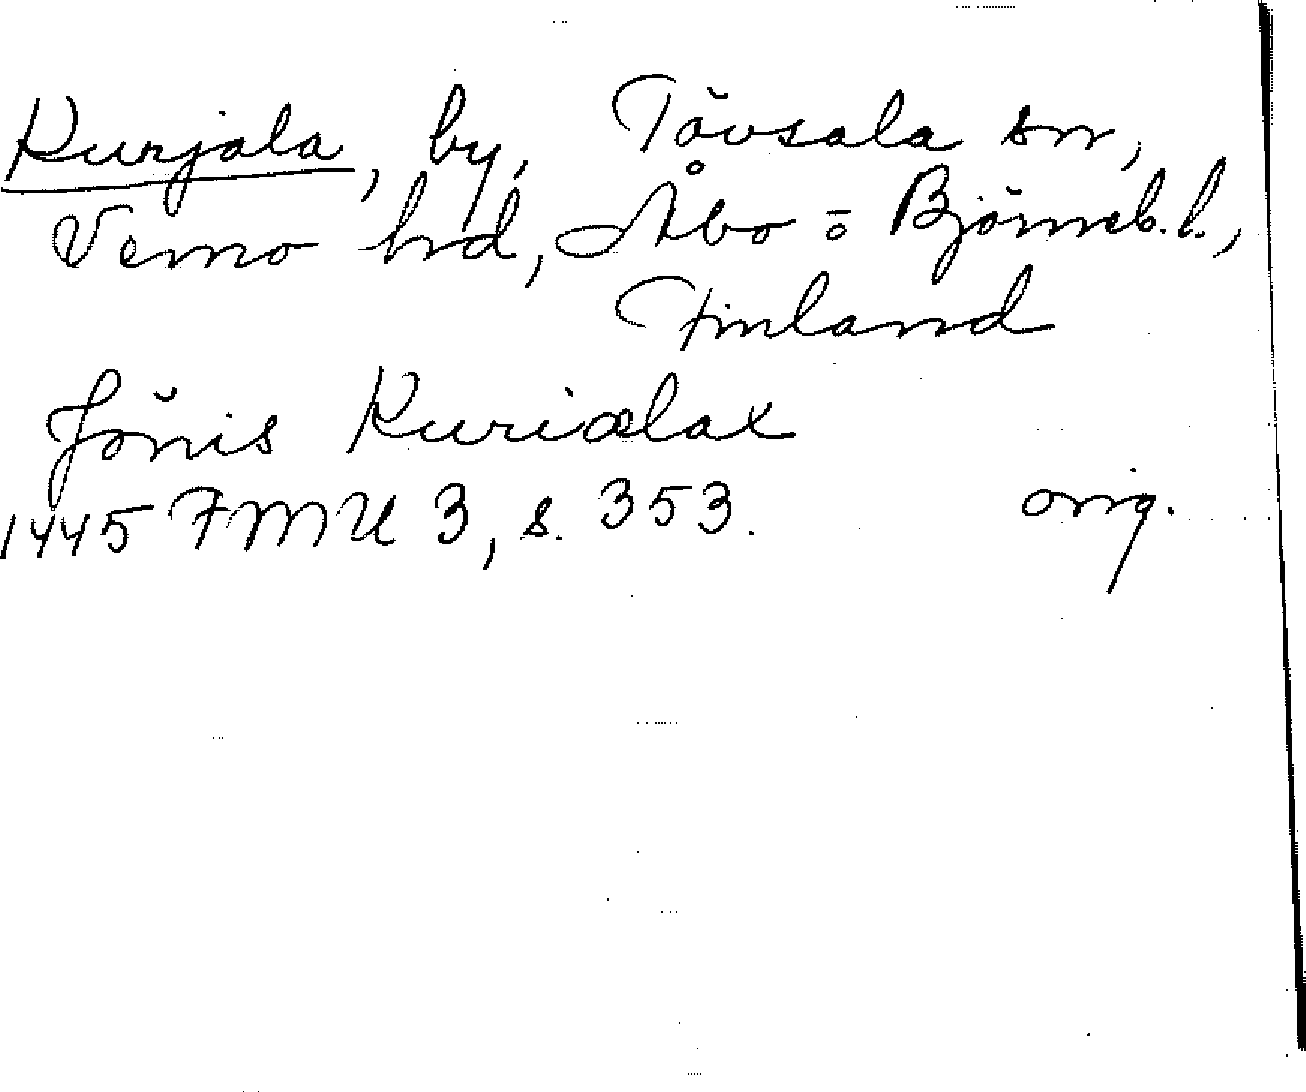 Kurjala, by, Tövsala sn,
Vemo hd, Åbo o Björneb. l.,
Finland
Jönis Kuriælax
1445 FMU 3, s. 353. orig.